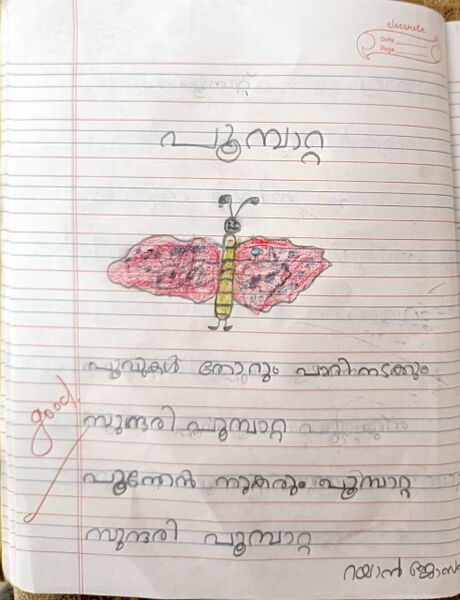 classmate
Date
Page
പൂമ്പാറ്റ
പൂവുകൾ തോറും പാറിനടക്കും
good
സുന്ദരി പൂമ്പാറ്റ
പൂന്തേൻ നുകരും പൂമ്പാറ്റ
സുന്ദരി പൂമ്പാറ്റ
റയാൻ